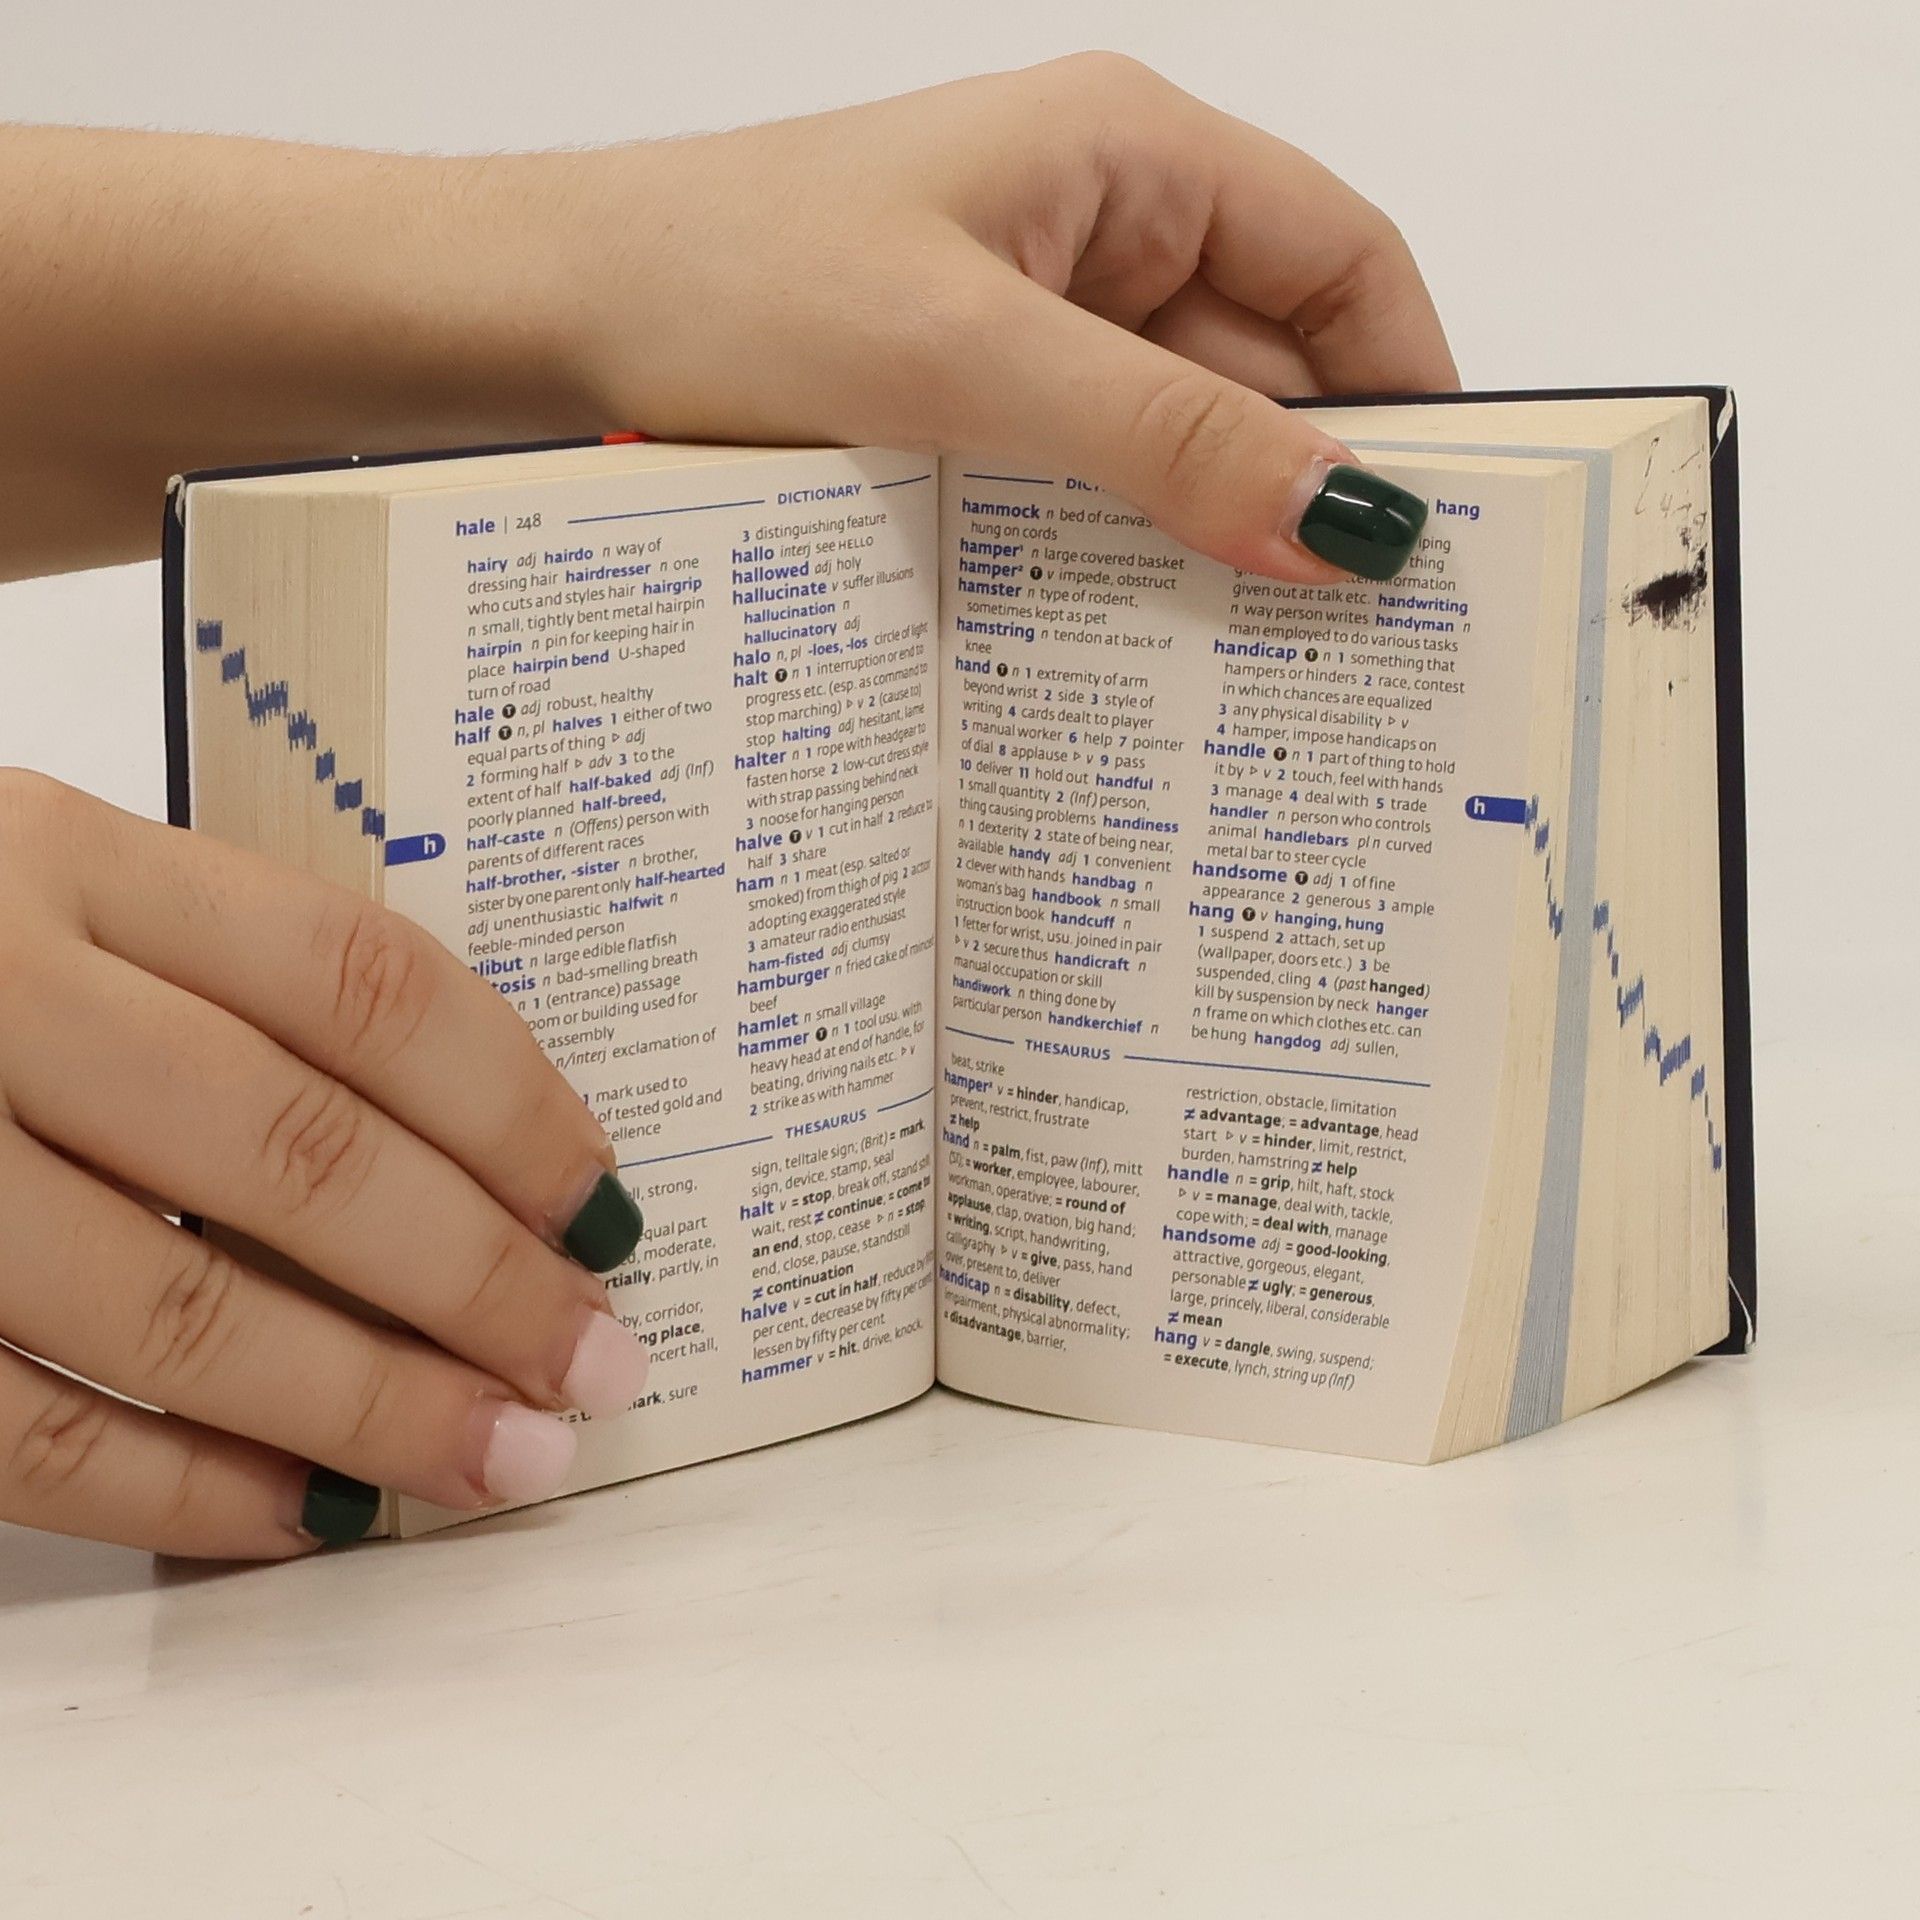 hale | 248
DICTIONARY
hairy adj hairdo n way of
dressing hair hairdresser n one
who cuts and styles hair hairgrip
n small, tightly bent metal hairpin
hairpin n pin for keeping hair in
place hairpin bend U-shaped
turn of road
hale T adj robust, healthy
half T n, pl halves 1 either of two
equal parts of thing ▷ adj
2 forming half ▷ adv 3 to the
extent of half half-baked adj (Inf)
poorly planned half-breed,
half-caste n (Offens) person with
parents of different races
half-brother, -sister n brother,
sister by one parent only half-hearted
adj unenthusiastic halfwit n
feeble-minded person
n large edible flatfish
n bad-smelling breath
n 1 (entrance) passage
or building used for
assembly
n/interj exclamation of
1 mark used to
of tested gold and
3 distinguishing feature
hallo interj see HELLO
hallowed adj holy
hallucinate v suffer illusions
hallucination n
hallucinatory adj
halo n, pl -loes, -los circle of light
halt T n 1 interruption or end to
progress etc. (esp. as command to
stop marching) ▷ v 2 (cause to)
stop halting adj hesitant, lame
halter n 1 rope with headgear to
fasten horse 2 low-cut dress style
with strap passing behind neck
3 noose for hanging person
halve T v 1 cut in half 2 reduce to
half 3 share
ham n 1 meat (esp. salted or
smoked) from thigh of pig 2 actor
adopting exaggerated style
3 amateur radio enthusiast
ham-fisted adj clumsy
hamburger n fried cake of minced
beef
hamlet n small village
hammer T n 1 tool usu. with
heavy head at end of handle, for
beating, driving nails etc. ▷ v
2 strike as with hammer
h
THESAURUS
strong,
equal part
moderate,
partly, in
corridor,
place,
hall,
sure
sign, telltale sign; (Brit) = mark,
sign, device, stamp, seal
halt v = stop, break off, stand still,
wait, rest ≠ continue; = come to
an end, stop, cease ▷ n = stop
end, close, pause, standstill
≠ continuation
halve v = cut in half, reduce by fifty
per cent, decrease by fifty per cent,
lessen by fifty per cent
hammer v = hit, drive, knock,
| hang
hammock n bed of canvas
hung on cords
hamper¹ n large covered basket
hamper² T v impede, obstruct
hamster n type of rodent,
sometimes kept as pet
hamstring n tendon at back of
knee
hand T n 1 extremity of arm
beyond wrist 2 side 3 style of
writing 4 cards dealt to player
5 manual worker 6 help 7 pointer
of dial 8 applause ▷ v 9 pass
10 deliver 11 hold out handful n
1 small quantity 2 (Inf) person,
thing causing problems handiness
n 1 dexterity 2 state of being near,
available handy adj 1 convenient
2 clever with hands handbag n
woman's bag handbook n small
instruction book handcuff n
1 fetter for wrist, usu. joined in pair
▷ v 2 secure thus handicraft n
manual occupation or skill
handiwork n thing done by
particular person handkerchief n
thing
given out at talk etc. handwriting
n way person writes handyman n
man employed to do various tasks
handicap T n 1 something that
hampers or hinders 2 race, contest
in which chances are equalized
3 any physical disability ▷ v
4 hamper, impose handicaps on
handle T n 1 part of thing to hold
it by ▷ v 2 touch, feel with hands
3 manage 4 deal with 5 trade
handler n person who controls
animal handlebars pl n curved
metal bar to steer cycle
handsome T adj 1 of fine
appearance 2 generous 3 ample
hang T v hanging, hung
1 suspend 2 attach, set up
(wallpaper, doors etc.) 3 be
suspended, cling 4 (past hanged)
kill by suspension by neck hanger
n frame on which clothes etc. can
be hung hangdog adj sullen,
h
THESAURUS
beat, strike
hamper² v = hinder, handicap,
prevent, restrict, frustrate
≠ help
hand n = palm, fist, paw (Inf), mitt
= worker, employee, labourer,
workman, operative; = round of
applause, clap, ovation, big hand;
= writing, script, handwriting,
calligraphy ▷ v = give, pass, hand
over, present to, deliver
handicap n = disability, defect,
impairment, physical abnormality;
= disadvantage, barrier,
restriction, obstacle, limitation
≠ advantage; = advantage, head
start ▷ v = hinder, limit, restrict,
burden, hamstring ≠ help
handle n = grip, hilt, haft, stock
▷ v = manage, deal with, tackle,
cope with; = deal with, manage
handsome adj = good-looking,
attractive, gorgeous, elegant,
personable ≠ ugly; = generous,
large, princely, liberal, considerable
≠ mean
hang v = dangle, swing, suspend;
= execute, lynch, string up (Inf)